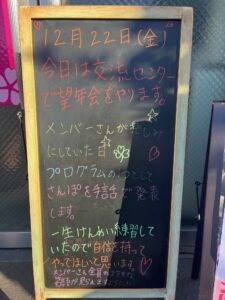 12月22日(金)
今日は交流センター
で望年会をやります。
メンバーさんが楽しみ
にしていた日
プログラムの1つとして
さんぽを手話で発表
します。
一生けんめい練習して
いたので自信を持って
やってほしいと思います。
メンバーさん全員の